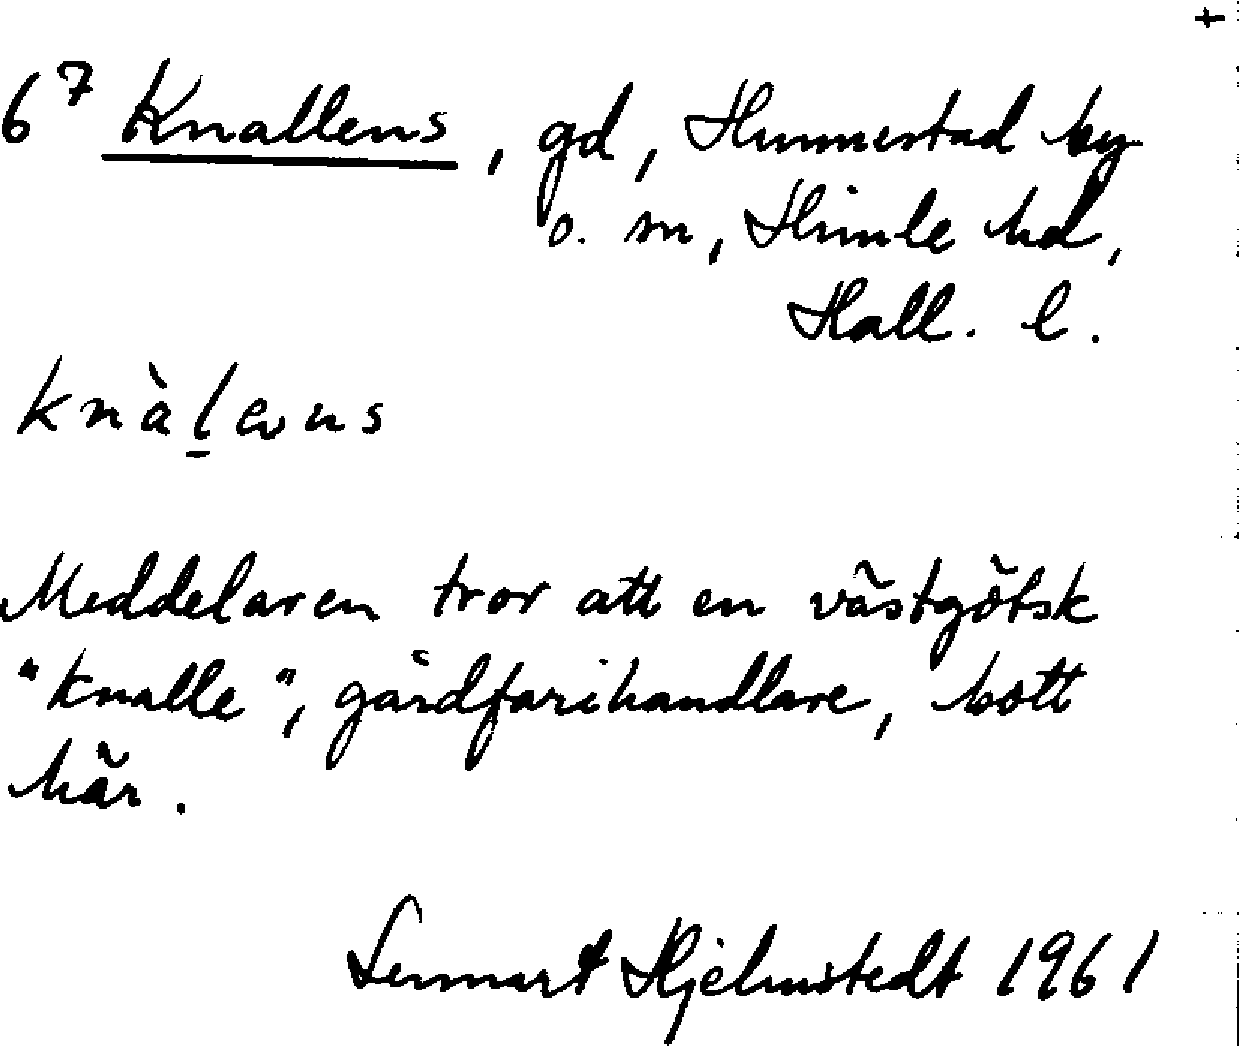 6⁷ Knallens, gd, Hunnestad by
o. sn, Himle hd,
Hall. l.
Meddelaren tror att en västgötsk
"knalle", gårdfarihandlare, bott
här.
Lennart Hjelmstedt 1961